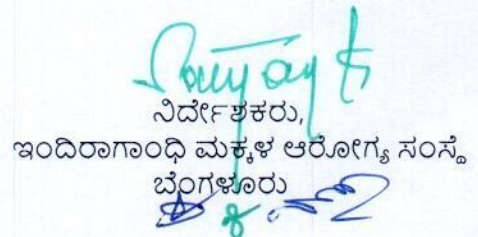 ನಿರ್ದೇಶಕರು,
ಇಂದಿರಾಗಾಂಧಿ ಮಕ್ಕಳ ಆರೋಗ್ಯ ಸಂಸ್ಥೆ
ಬೆಂಗಳೂರು